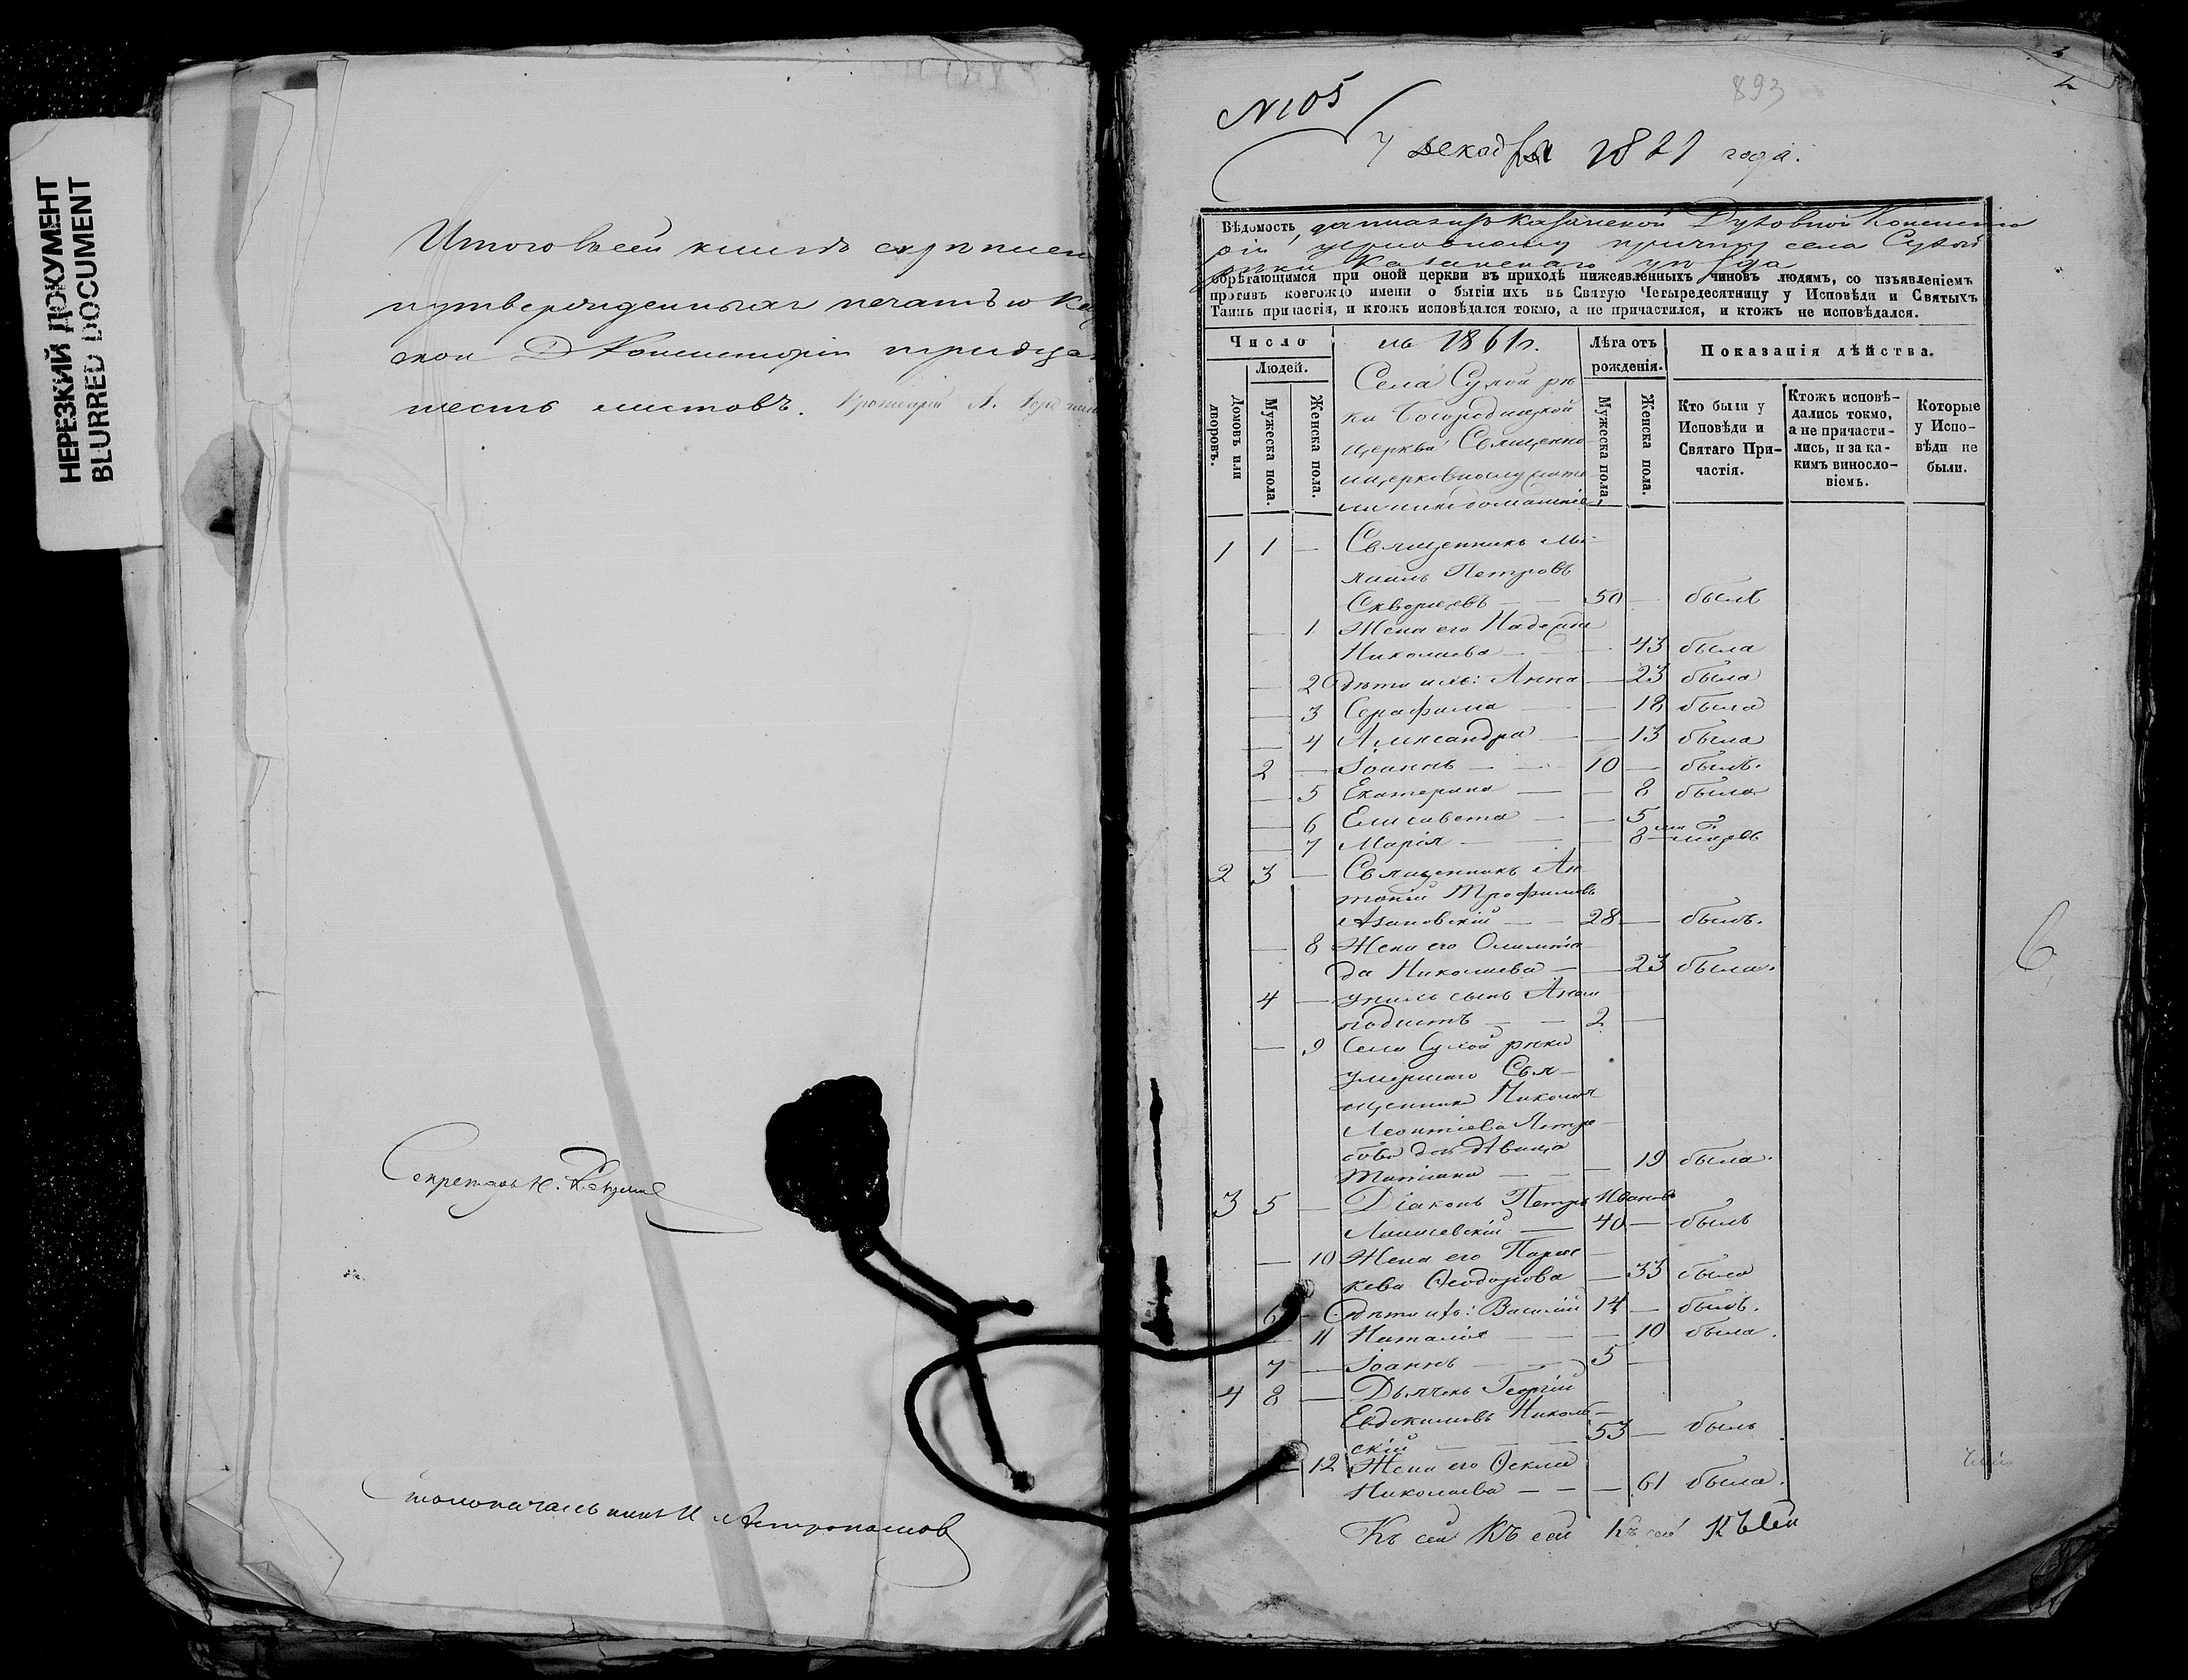 НЕРЕЗКИЙ ДОКУМЕНТ
BLURRED DOCUMENT
Итого в сей книгѣ скрѣплен
и утвержденныхъ печатью Каз
ской Д Консисторіи тридца
шесть листовъ.
Секретарь Н.
Столоначальникъ И Митропольскій
893
N 105
7 Декабря 18 года.
Вѣдомость, данная изъ Казанской Духовной Консисто
ріи церковному причту села Сухой
рѣки Казанскаго уѣзда
обрѣтающимся при оной церкви въ приходѣ нижеявленныхъ чиновъ людямъ, со изъявленіемъ
противъ коегождо имени о бытіи ихъ въ Святую Четыредесятницу у Исповѣди и Святыхъ
Таинъ причастія, и ктожъ исповѣдался токмо, а не причастился, и ктожъ не исповѣдался.
Число
на 1861 г.
Лѣта отъ
рожденія.
Показанія дѣйства.
Людей.
Домовъ или
дворовъ.
Мужеска пола.
Женска пола.
Села Сухой рѣ
ки Богородицкой
церкви Священно
ицерковнослужите
ли и ихъ домашніе
Мужеска пола.
Женска пола.
Кто были у
Исповѣди и
Святаго При-
частія.
Ктожъ исповѣ-
дались токмо,
а не причасти-
лись, и за ка-
кимъ виносло-
віемъ.
Которые
у Испо-
вѣди не
были.
1 1 — Священникъ Ми-
хаилъ Петровъ
Скворцевъ — 50 — былъ
— 1 Жена его Надежда
Николаева — 43 была
— 2 Дѣти ихъ: Анна — 23 была
— 3 Серафима — — 18 была
— 4 Александра — — 13 была
2 — Іоаннъ — — 10 — былъ.
— 5 Екатерина — — 8 была
— 6 Елисавета — — 5
— 7 Марія — — 8 мѣсяцевъ
2 3 — Священникъ Ан
тоній Трофимовъ
Азановскій — 28 — былъ.
— 8 Жена его Олимпіа
да Николаева — — 23 была.
4 — У нихъ сынъ Ане
подистъ — — 2 —
— 9 Села Сухой рѣки
умершаго Свя-
щенника Николая
Леонтіева Петро
дочь дѣвица
Татіана — — — 19 была.
3 5 — Діаконъ Петръ Ивановъ
— 40 — былъ
— 10 Жена его Парас
кева Ѳеодорова — 33 была
6 — Дѣти ихъ: Василій 14 — былъ.
— 11 Наталія — — — 10 была.
7 — Іоаннъ — — 5 —
4 8 — Дьячекъ Георгій
Евдокимовъ Николь-
скій — — — 53 — былъ
— 12 Жена его Ѳекла
Николаева — — — 61 была.
Къ сей Къ сей Къ сей Къ сей
6